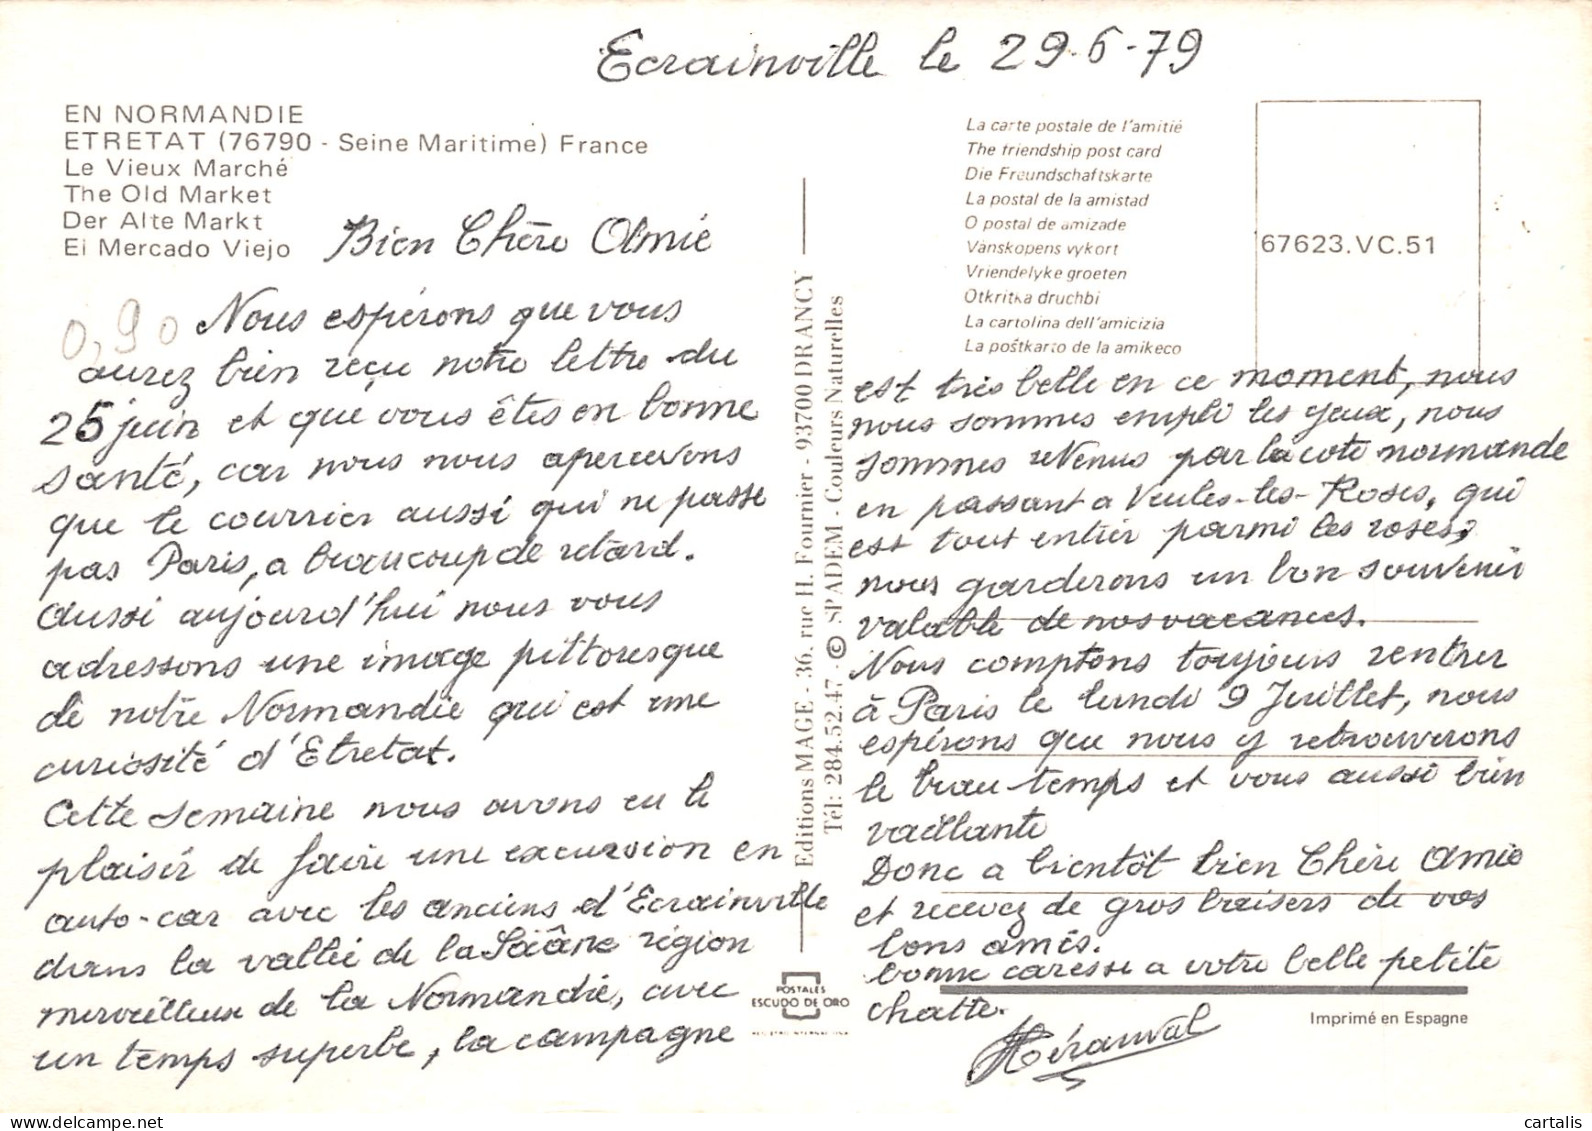 Ecrainville le 29-6-79
EN NORMANDIE
ETRETAT (76790 - Seine Maritime) France
Le Vieux Marché
The Old Market
Der Alte Markt
El Mercado Viejo
Bien Chère Amie
0,90
Nous espérons que vous
aurez bien reçu notre lettre du
25 juin et que vous êtes en bonne
santé, car nous nous apercevons
que le courrier aussi qui ne passe
pas Paris, a beaucoup de retard.
Aussi aujourd'hui nous vous
adressons une image pittoresque
de notre Normandie qui est une
curiosité d'Etretat.
Cette semaine nous avons eu le
plaisir de faire une excursion en
auto-car avec les anciens d'Ecrainville
dans la vallée de la Saâne région
merveilleuse de la Normandie, avec
un temps superbe, la campagne
Editions MAGE - 36, rue H. Fournier - 93700 DRANCY
Tél: 284.52.47 - © SPADEM - Couleurs Naturelles
POSTALES
ESCUDO DE ORO
La carte postale de l'amitié
The friendship post card
Die Freundschaftskarte
La postal de la amistad
O postal de amizade
Vänskopens vykort
Vriendelyke groeten
Otkritka druchbi
La cartolina dell'amicizia
La poŝtkarto de la amikeco
67623.VC.51
est très belle en ce moment, nous
nous sommes empli les yeux, nous
sommes revenus par la cote normande
en passant a Veules-les-Roses, qui
est tout entier parmi les roses,
nous garderons un bon souvenir
valable de nos vacances.
Nous comptons toujours rentrer
à Paris le lundi 9 Juillet, nous
espérons que nous y retrouverons
le beau temps et vous aussi bien
vaillante
Donc a bientôt bien Chère Amie
et recevez de gros baisers de vos
bons amis.
bonne caresse a votre belle petite
chatte.
Imprimé en Espagne